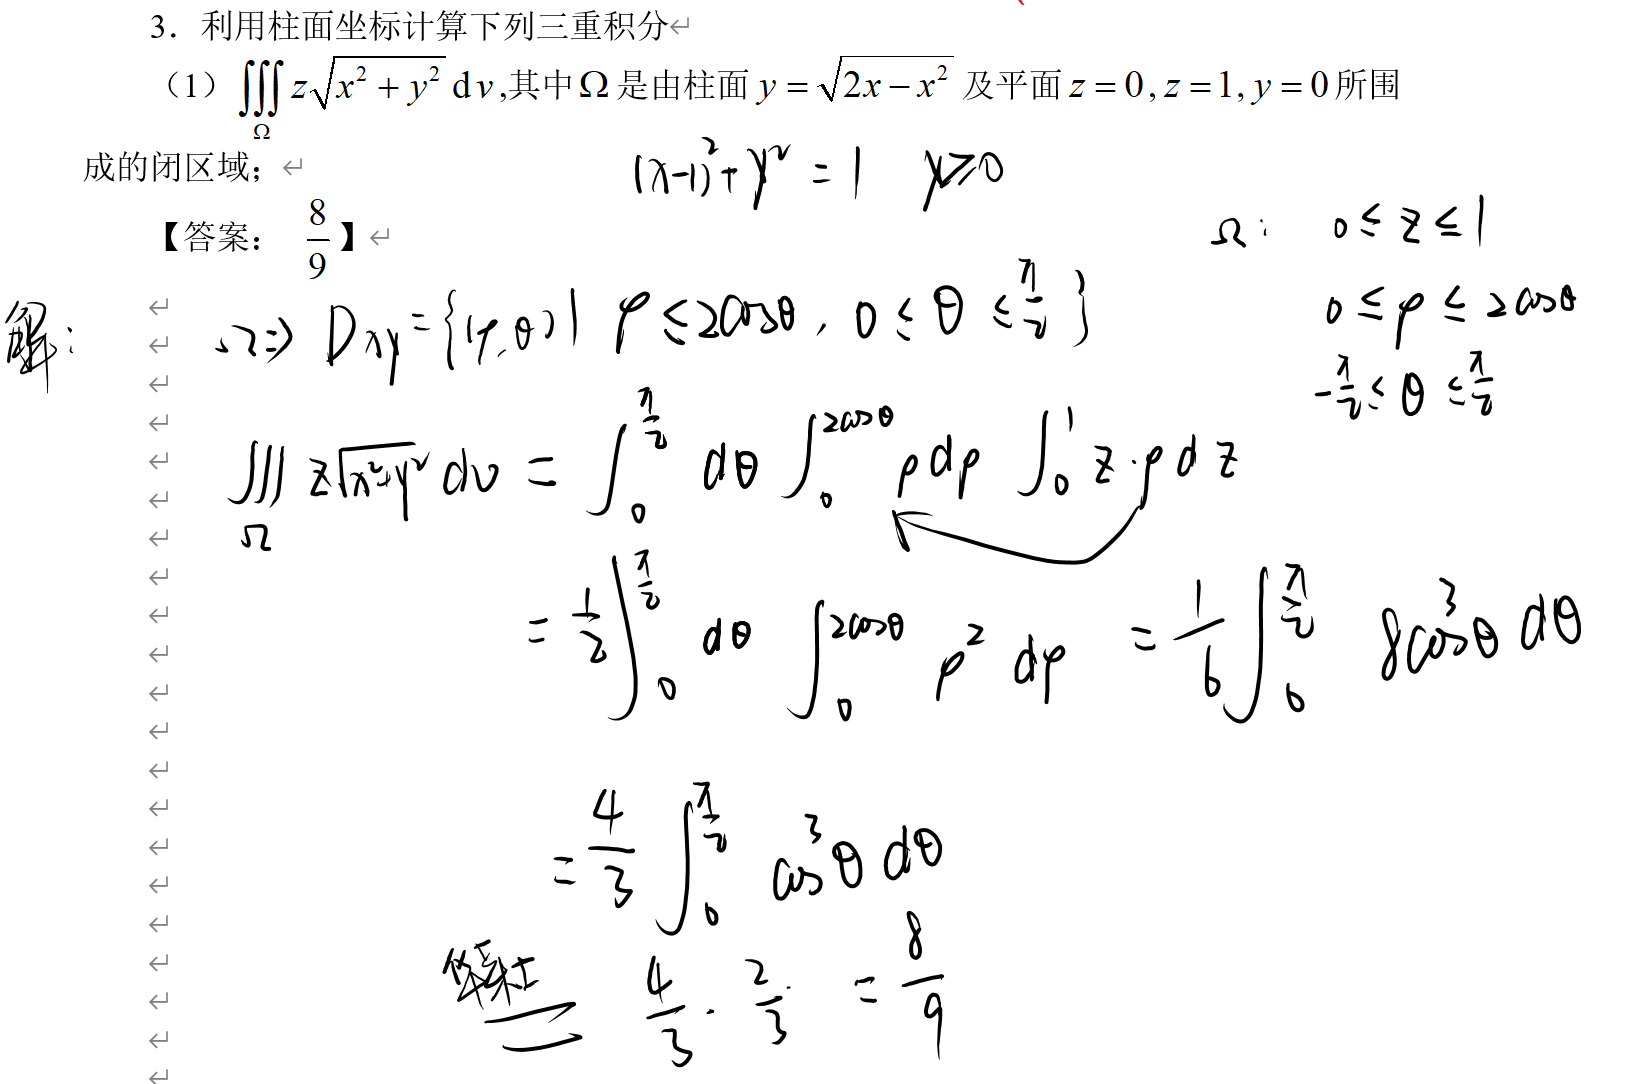 3．利用柱面坐标计算下列三重积分
（1）∭_Ω z√(x²+y²) dv,其中Ω是由柱面 y=√(2x−x²) 及平面 z=0,z=1,y=0所围
成的闭区域；
(x-1)²+y²=1  y≥0
【答案：8/9】
Ω: 0≤z≤1
0≤ρ≤2cosθ
-π/2≤θ≤π/2
解: Ω⇒ Dxy={(ρ,θ)| ρ≤2cosθ, 0≤θ≤π/2}
∭_Ω z√(x²+y²) dv = ∫_0^{π/2} dθ ∫_0^{2cosθ} ρdρ ∫_0^1 z·ρdz
= 1/2 ∫_0^{π/2} dθ ∫_0^{2cosθ} ρ² dρ = 1/6 ∫_0^{π/2} 8cos³θ dθ
= 4/3 ∫_0^{π/2} cos³θ dθ
4/3 · 2/3 · = 8/9